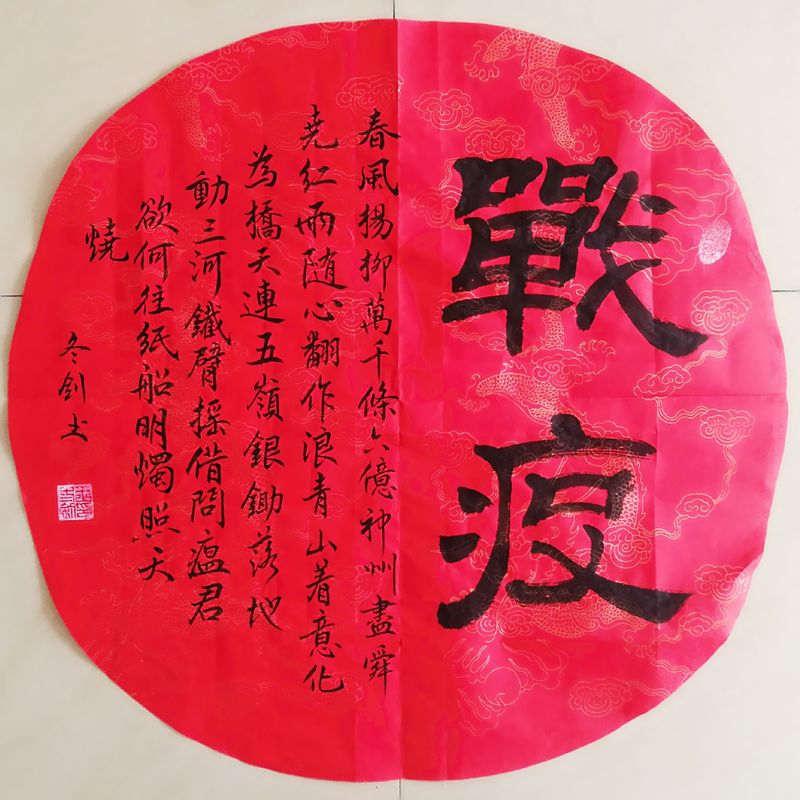 戰疫
春風楊柳萬千條六億神州盡舜
堯紅雨随心翻作浪青山着意化
為橋天連五嶺銀鋤落地
動三河鐵臂搖借問瘟君
欲何往紙船明燭照天
燒
冬剑书